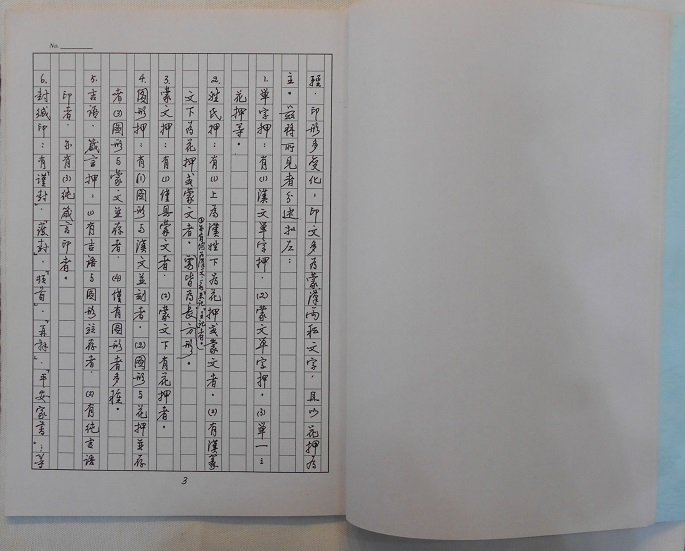 No.
種．印形多变化，印文多為蒙漢兩種文字．且以花押為
主。茲將所見者分述於左：
1. 單字押：有(1)漢文單字押．(2)蒙文單字押．(3)單一之
花押等。
2. 姓氏押：有(1)上為漢姓下為花押或蒙文者．(2)有漢篆
文下為花押或蒙文者。皆為長方形。
3. 蒙文押：有(1)僅具蒙文者．(2)蒙文下有花押者．
4. 圖形押：有(1)圖形与漢文並刻者．(2)圖形与花押並存
者(3)圖形与蒙文並存者．(4)僅有圖形者多種。
5. 吉語．箴言押：(1)有吉語与圖形並存者．(2)有純吉語
印者．亦有(3)純箴言印者。
6. 封緘印：有「謹封」．「護封」．「頓首」．「再拜」．「平安家書」…等
3